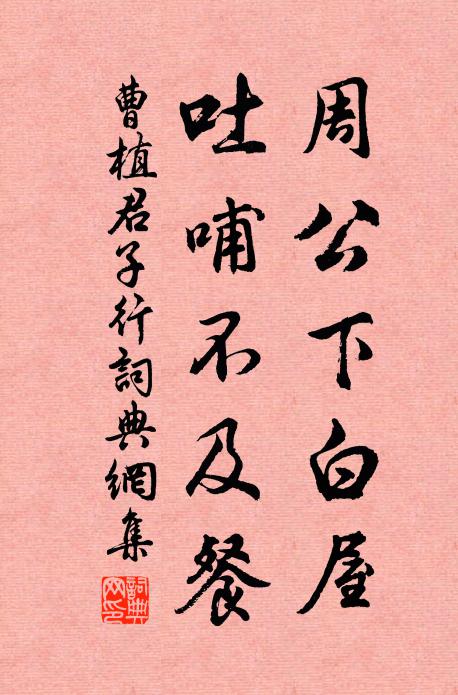 周公下白屋
吐哺不及餐
曹植君子行詞典網集
詞典網印